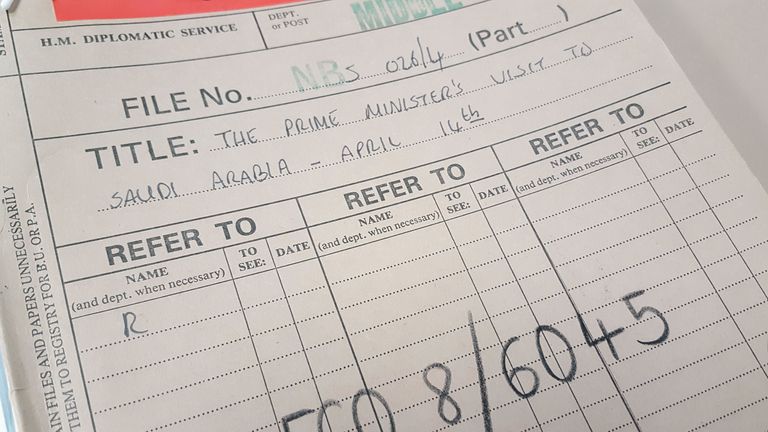 H.M. DIPLOMATIC SERVICE
DEPT.
or POST
MIDDLE
FILE No. NBS 026/4 (Part )
TITLE: THE PRIME MINISTER'S VISIT TO
SAUDI ARABIA - APRIL 14th
REFER TO
NAME
(and dept. when necessary)
TO
SEE:
DATE
R
REFER TO
NAME
(and dept. when necessary)
TO
SEE:
DATE
REFER TO
NAME
(and dept. when necessary)
TO
SEE:
DATE
FCO 8/6045
FILES AND PAPERS UNNECESSARILY
THEM TO REGISTRY FOR B.U. OR P.A.